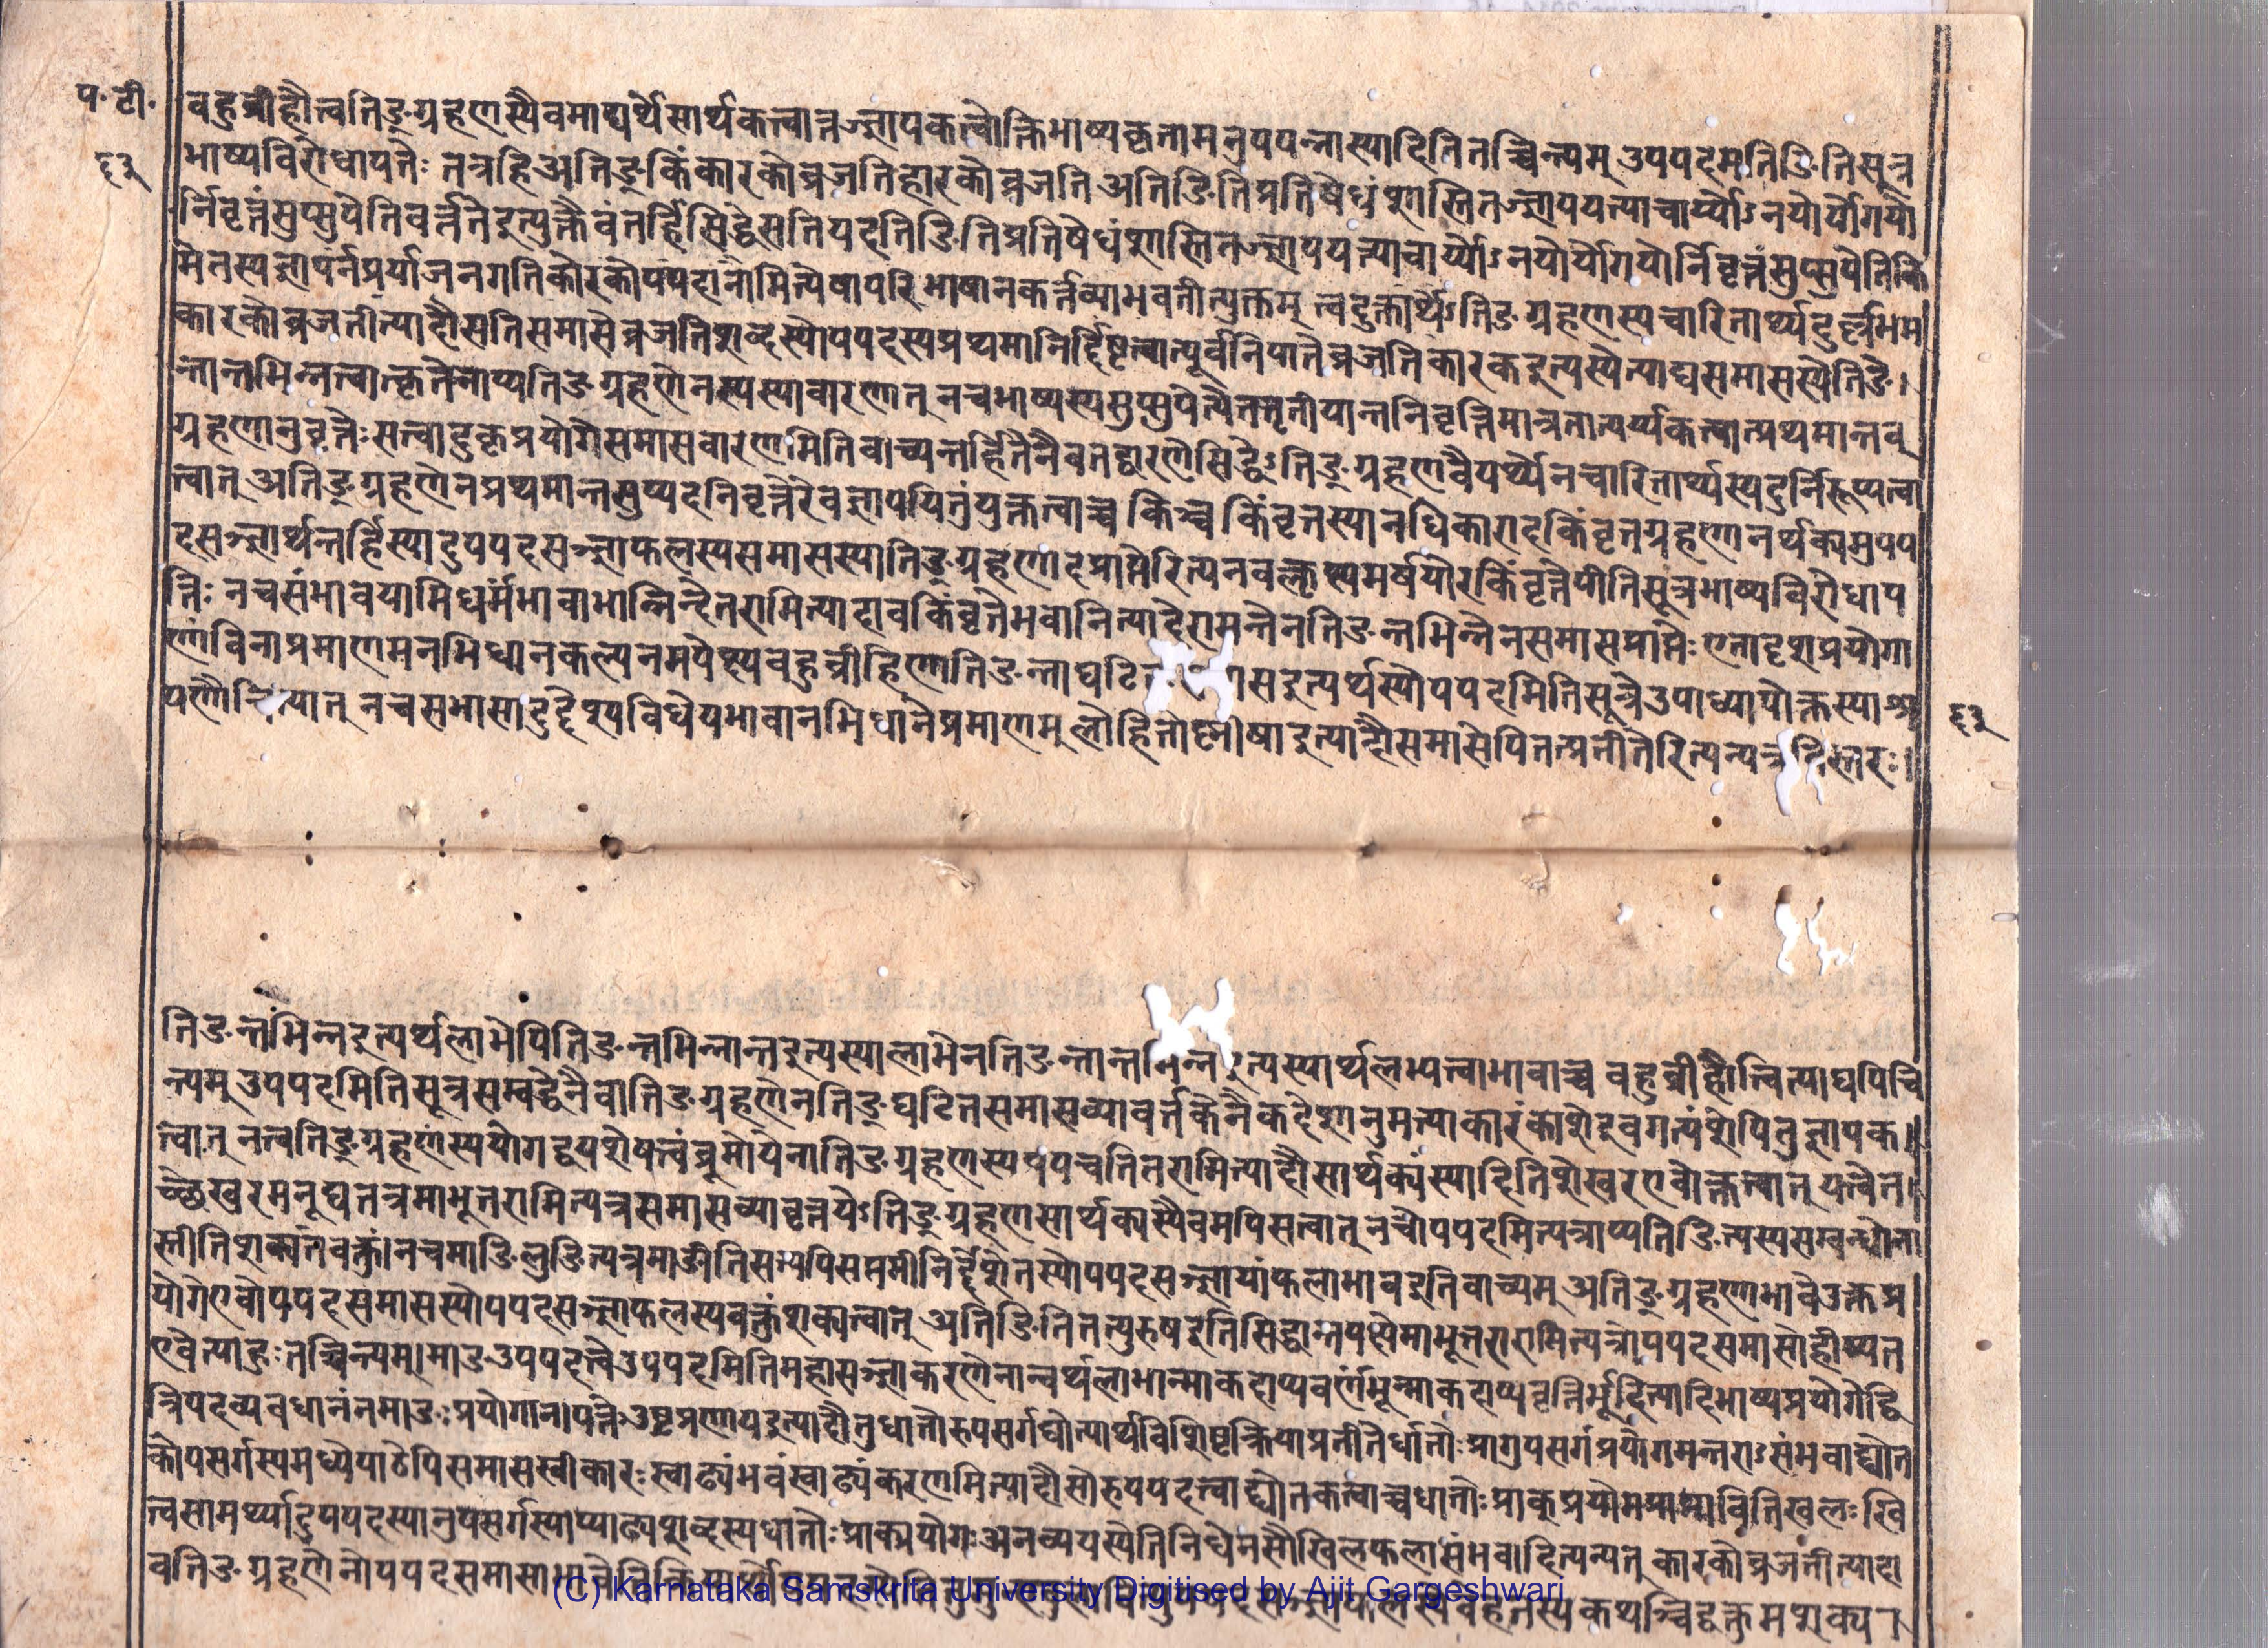 प॰ टी॰
६३
वहुव्रीहौत्वतिङ्ग्रहणस्यैवमाद्यर्थेसार्थकत्वान्नज्ञापकत्वोक्तिभाष्यकृतामनुपपन्नास्यादितितच्चिन्त्यम् उपपदमतिङितिसूत्र
भाष्यविरोधापत्तेः तत्रहिअतिङ्किंकारकोव्रजतिहारकोव्रजति अतिङितिप्रतिषेधंशास्तितज्ज्ञापयत्याचार्य्योऽनयोर्योगयो
र्निवृत्तंसुप्सुपेतिवर्त्ततेइत्युक्तैवंतर्हिसिद्धेसतियदतिङितिप्रतिषेधंशास्तितज्ज्ञापयत्याचार्य्योऽनयोर्योगयोर्निवृत्तंसुप्सुपेतिकि
मेतस्यज्ञापनेप्रयोजनगतिकारकोपपदानामित्येषापरिभाषानकर्त्तव्याभवतीत्युक्तम् त्वदुक्तार्थेऽतिङ्ग्रहणस्यचारितार्थ्य
कारकोव्रजतीत्यादौसतिसमासेव्रजतिशब्दस्योपपदस्यप्रथमानिर्दिष्टत्वात्पूर्वनिपातेव्रजतिकारकइत्यस्येत्याद्यसमासस्येतिङ
न्तान्तभिन्नत्वात्कृतेनाप्यतिङ्ग्रहणेनस्यस्यावारणात् नचभाष्यस्यसुप्सुपेत्येतत्तृतीयान्तनिवृत्तिमात्रतात्पर्य्यकत्वात्प्रथमान्तव्
ग्रहणानुवृत्तेःसत्वादुक्तप्रयोगेसमासवारणमितिवाच्यन्तर्हितेनैवतद्वारणेसिद्धेऽतिङ्ग्रहणवैयर्थ्येनचारितार्थ्यस्यदुर्निरूप्यत्वा
त्वात् अतिङ्ग्रहणेनप्रथमान्तसुप्पदनिवृत्तेरेवज्ञापयितुंयुक्तत्वाच्च किञ्च किंवृत्तस्यानधिकारादकिंवृत्तग्रहणानर्थक्यमुपप
दसञ्ज्ञार्थन्तर्हिस्यादुपपदसञ्ज्ञाफलस्यसमासस्यातिङ्ग्रहणादप्राप्तेरित्यनवक्लृप्त्यमर्षयोरकिंवृत्तेपीतिसूत्रभाष्यविरोधाप
त्तिः नचसंभावयामिधर्मंभवाभान्निन्देतरामित्यादावकिंवृत्तेभवानित्यादेरामन्तेनतिङन्तभिन्नेनसमासप्राप्तेः एतादृशप्रयोगा
णांविनाप्रमाणमनभिधानकल्पनमपेक्ष्यवहुव्रीहिणातिङन्ताघटित सइत्यर्थस्योपपदमितिसूत्रेउपाध्यायोक्तस्याश्र
यणौचित्यात् नचसमासादुद्देश्यविधेयभावानभिधानेप्रमाणम् लोहितोष्णीषाइत्यादौसमासेपितत्प्रतीतेरित्यन्यत्रविस्तरः।
६३
तिङन्तभिन्नइत्यर्थलाभेपितिङन्तभिन्नान्तइत्यस्यालाभेनतिङन्तान्तभिन्नइत्यस्यार्थलभ्यत्वाभावाच्च वहुव्रीहौत्वित्याद्यपिचि
न्त्यम् उपपदमितिसूत्रसम्बद्धेनैवातिङ्ग्रहणेनतिङ्घटितसमासव्यावर्त्तकेनैकदेशानुमत्याकारंकांशेइवगत्यंशेपितुज्ञापक
त्वात् नत्वतिङ्ग्रहणंस्ययोगद्वयशेषत्वंब्रूमोयेनातिङ्ग्रहणस्यप्रपचतितरामित्यादौसार्थक्यंस्यादितिशेखरएवोक्तत्वात् यत्वेत
च्छेखरमनूद्यतत्रमाभूत्तरामित्यत्रसमासव्यावृत्तयेऽतिङ्ग्रहणसार्थक्यस्यैवमपिसत्वात् नचोपपदमित्यत्राप्यतिङित्यस्यसम्बन्धोना
स्तीतिशक्यंतेवक्तुं।नचमाङिलुङित्यत्रमाङीतिसप्तम्यपिसप्तमीनिर्द्देशेनस्योपपदसञ्ज्ञायांफलाभावइतिवाच्यम् अतिङ्ग्रहणाभावेउक्तप्र
योगेएवोपपदसमासस्योपपदसञ्ज्ञाफलस्यवक्तुंशक्यत्वात् अतिङितितत्पुरुषइतिसिद्धान्तपक्षेमाभूत्तरामित्यत्रोपपदसमासोहीष्यत
एवेत्याहुःतच्चिन्त्यम्।माङउपपदत्वेउपपदमितिमहासञ्ज्ञाकरणेनान्वर्थलाभान्माकदाप्यवर्णंभून्माकदाप्यवृत्तिर्भूदित्यादिभाष्यप्रयोगेद्वि
त्रिपदव्यवधानंनमाङःप्रयोगानापत्तेःउष्ट्रप्रणायइत्यादौतुधातोरुपसर्गद्योत्यार्थविशिष्टक्रियाप्रतीतेर्धातोःप्रागुपसर्गप्रयोगमन्तराऽसंभवाद्द्योत
कोपसर्गस्यमध्येपाठेपिसमासस्वीकारःस्वाढ्यंभवंस्वाढ्यंकरणमित्यादौसोरुपपदत्वाद्द्योतकत्वाच्चधातोःप्राक्प्रयोगप्राप्तावितिखलःखि
त्वसामर्थ्यादुपपदस्यानुपसर्गस्याप्याढ्यशब्दस्यधातोःप्राक्प्रयोगःअनव्ययस्येतिनिषेधेनसौखिलफलासंभवादित्यन्यत् कारकोव्रजतीत्यादा
वतिङ्ग्रहणेनोपपदसमासाभावे
(C) Karnataka Samskrita University Digitised by Ajit Gargeshwari